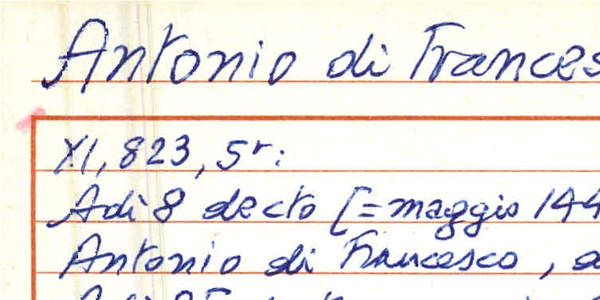 Antonio di Frances
XI, 823, 5r:
Adì 8 decto [= maggio 144
Antonio di Francesco, a